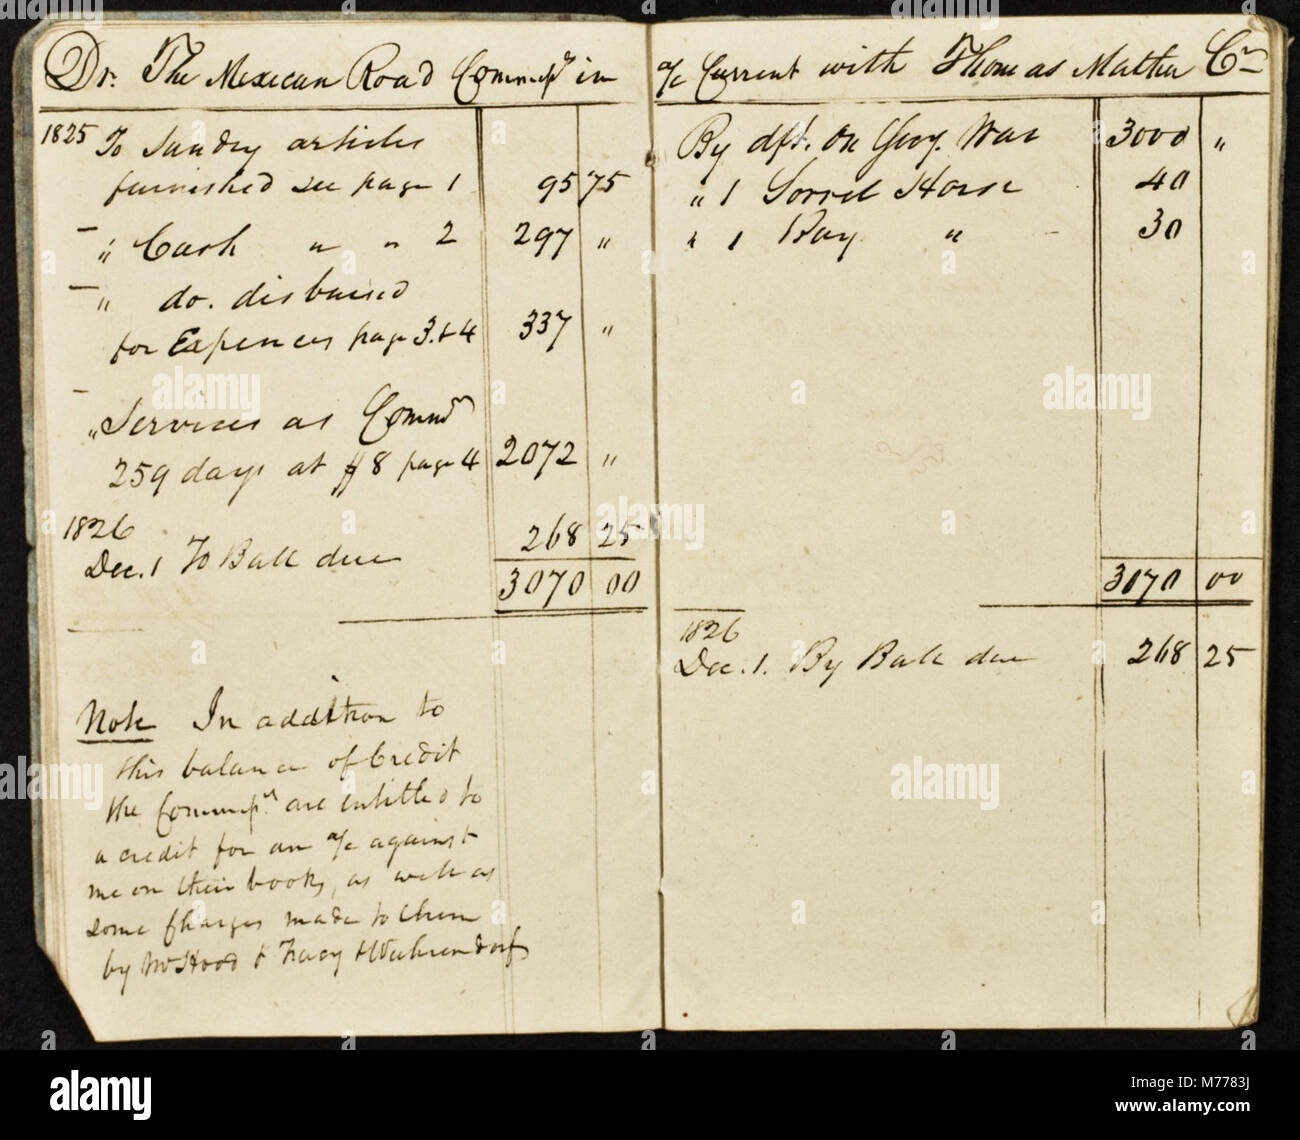 Dr. The Mexican Road Commrs. in
1825 To Sundry articles
furnished see page 1 95 75
" Cash " " 2 297 "
" do. disbursed
for Expences page 3. & 4 337 "
" Services as Commr
259 days at $8 page 4 2072 "
1826
Dec. 1 To Balle due 268 25
3070 00
Note In addition to
this balance of Credit
the Commrs. are entitled to
a credit for an a/c against
me on their books, as well as
some charges made to them
by Mr Hood & Tracy &
a/c Current with Thomas Mather Cr
By dft. on Secy. War 3000 "
" 1 Sorrel Horse 40
" 1 Bay " 30
3070 00
1826
Dec. 1. By Balle due 268 25
alamy
alamy stock photo
M7783J
www.alamy.com